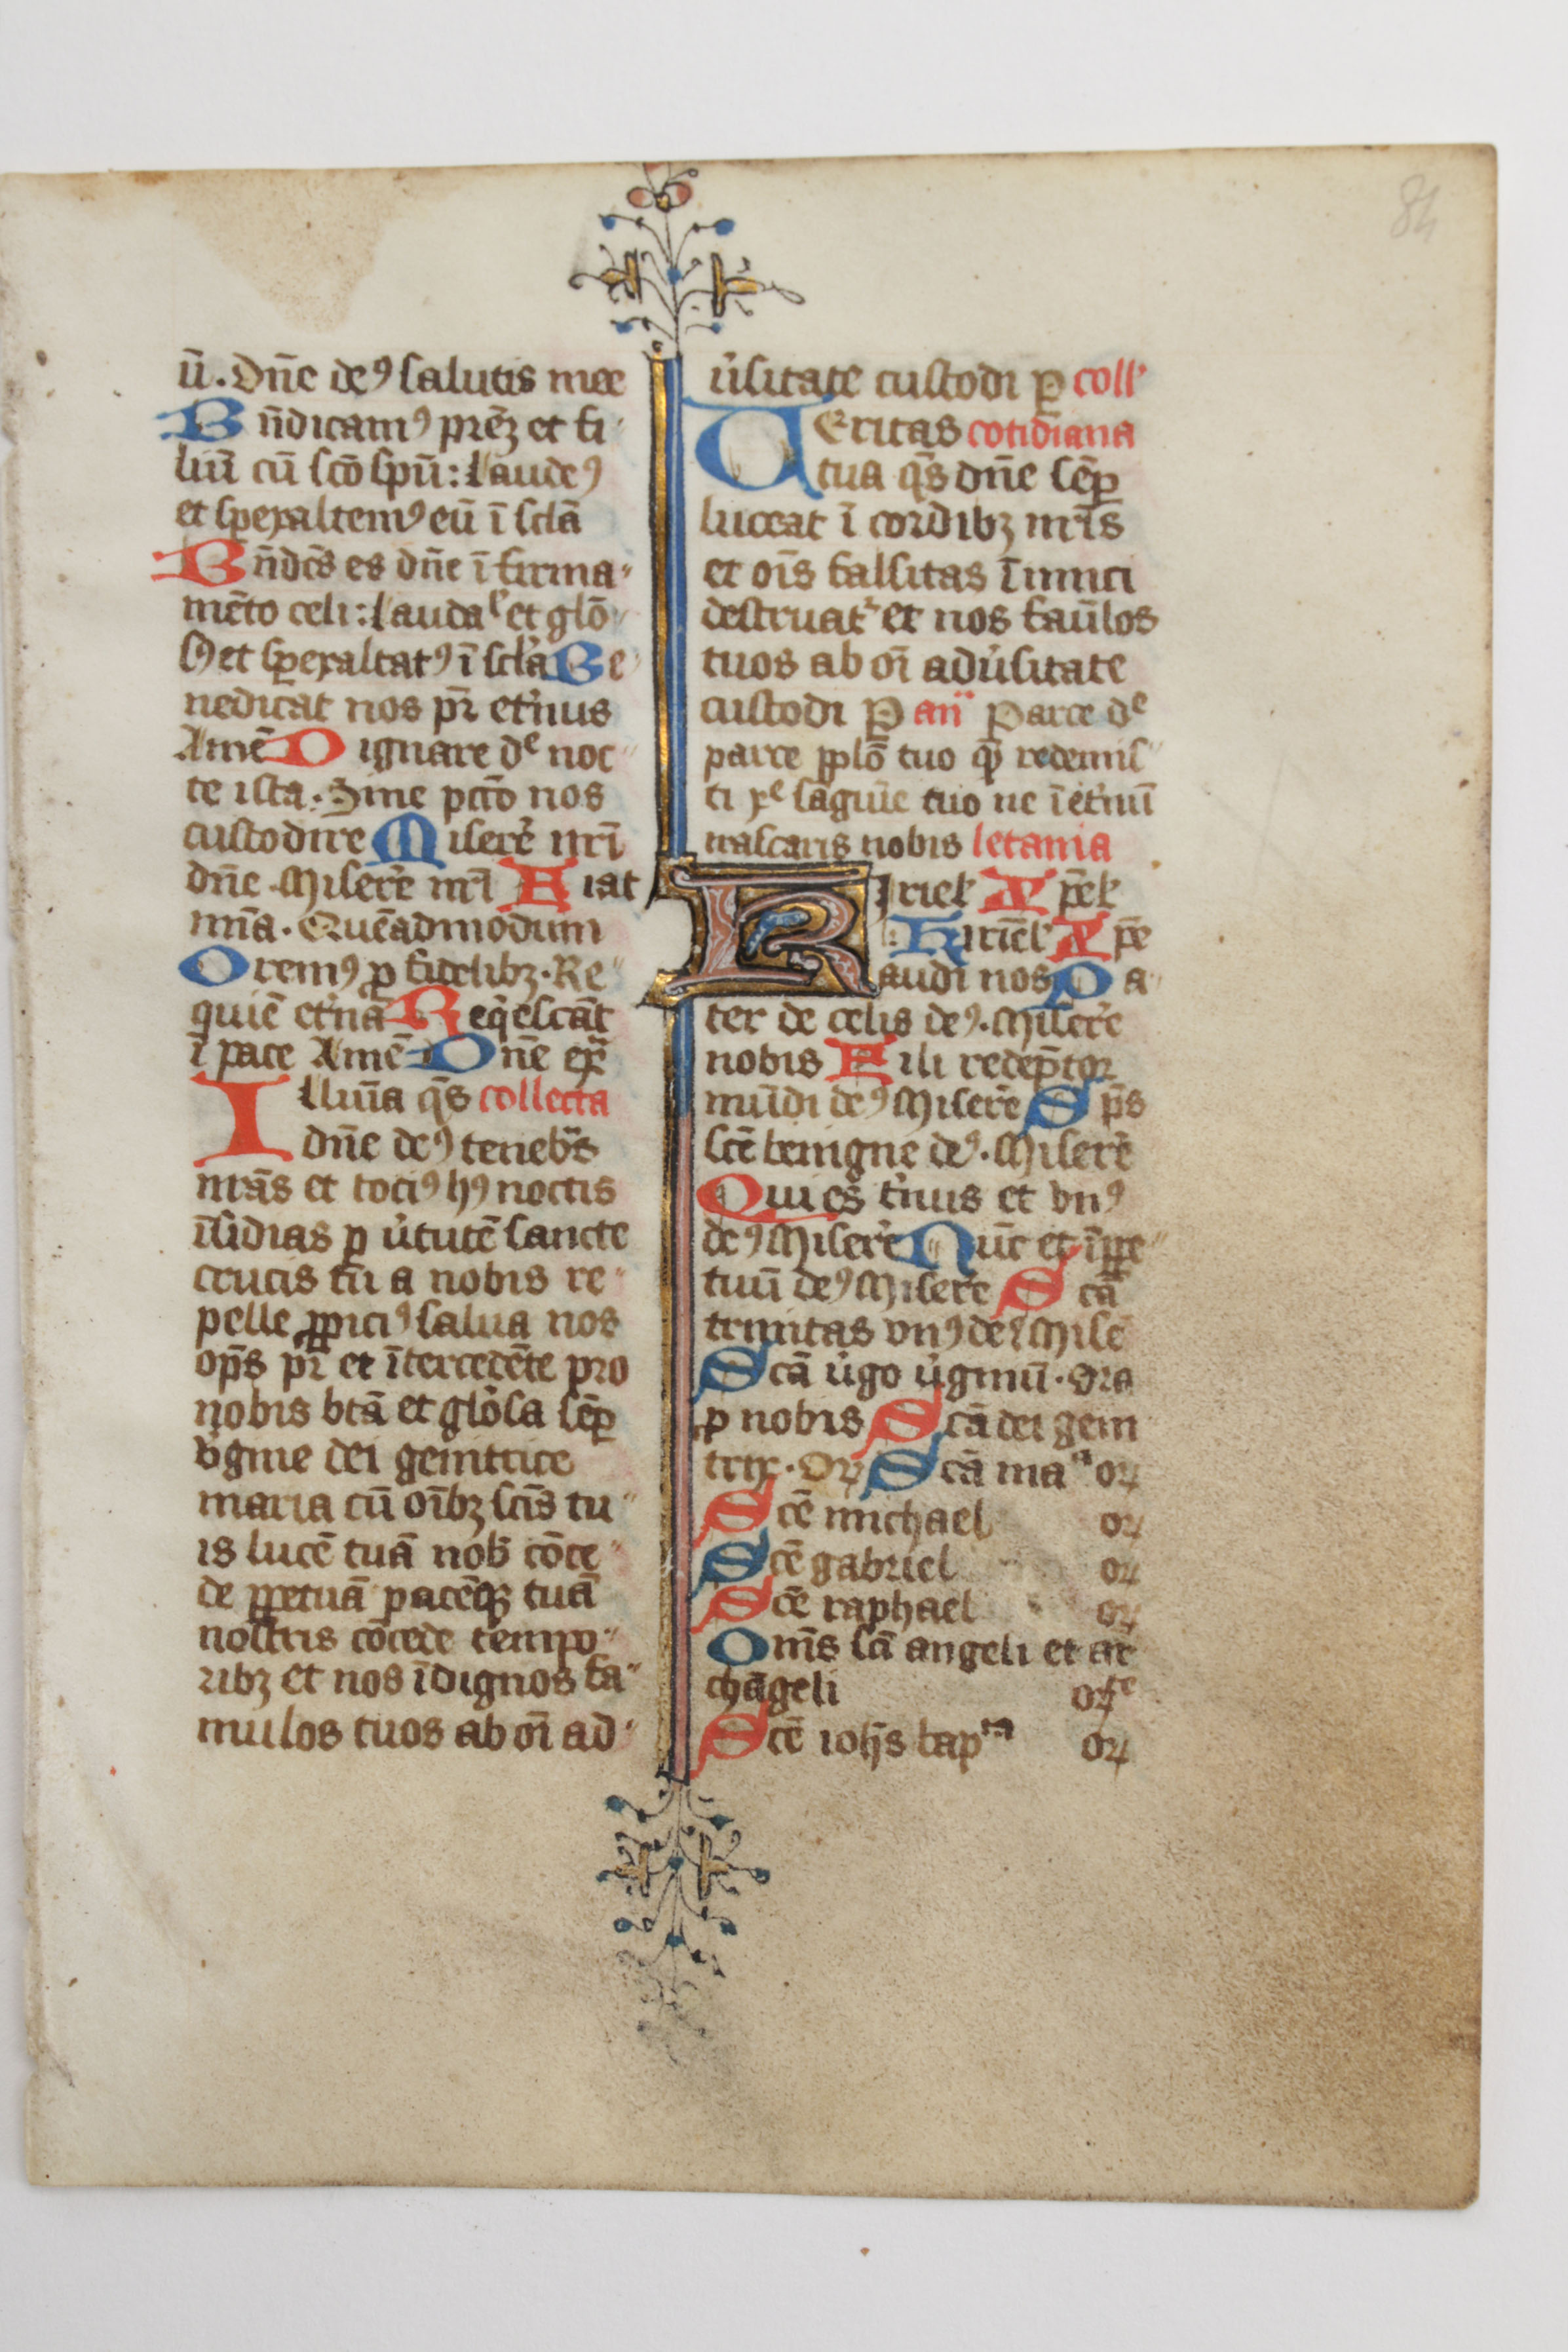 84
ū. Dn̄e deꝯ salutis mee
Bn̄dicamꝯ prēꝫ et fi
liū cū sc̄o spū: laudeꝯ
et sꝑexaltemꝯ eū ī sc̄la
Bn̄dc̄s es dn̄e ī firma
mēto celi: laudaˡ et glō
sꝯ et sꝑexaltatꝯ ī sc̄la Be
nedicat nos pr̄ et̓nus
Amē Dignare dᵉ noc
te ista. Sine pctō nos
custodire Miserē nr̄i
dn̄e. Miserē nr̄i Fiat
mn̄a. Quēadmodum
Oremꝯ ꝓ fidelibꝫ. Re
quiē et̓nā Reqͥescāt
ī pace Amē Dn̄e ex̄
Illuīa qs̄ collecta
dn̄e deꝯ tenebͣs
nrās et tociꝯ hꝯ noctis
īsidias ꝑ u̓tutē sancte
crucis tū a nobis re
pelle ꝓpiciꝯ salua nos
op̄s pr̄ et ītercedēte pro
nobis btā et glo̓sa sēꝑ
v̓gine dei genitrice
maria cū oībꝫ sc̄is tu
is lucē tuā nob̄ cōce
de ꝑpetuā pacēqꝫ tuā
nostris cōcede tempo
ribꝫ et nos īdignos fa
mulos tuos ab oī ad
u̓sitate custodi ꝑ coll'
Ueritas cotidiana
tua qs̄ dn̄e sēꝑ
luceat ī cordibꝫ nr̄is
et oīs falsitas īimici
destruatͬ et nos famlos
tuos ab oī adu̓sitate
custodi P an̄ Parce dᵉ
parce pplō tuo qͥ redemis
ti xᵉ sāguīe tuo ne ī et̓nū
irascaris nobis letania
Kiriel' Xp̄el'
Kiriēl' Xp̄e
audi nos Pa
ter de celis deꝯ. Miserē
nobis Fili redēptor
mūdi deꝯ Miserē Sp̄s
sc̄e benigne deꝯ. Miserē
Qui es t̓nus et vnꝯ
deꝯ Miserē Nūc et īꝑpe
tuū deꝯ Miserē Scā
trinitas vnꝯ deꝯ Misē
Scā u̓go u̓ginū. Ora
ꝓ nobis Scā dei geni
trix. Oꝝ Scā maᵃ oꝝ
Scē michael oꝝ
Scē gabriel oꝝ
Scē raphael oꝝ
Om̄s scī angeli et ar
chāgeli oꝝᵗᵉ
Scē ioh̄s bapᵗᵃ oꝝ